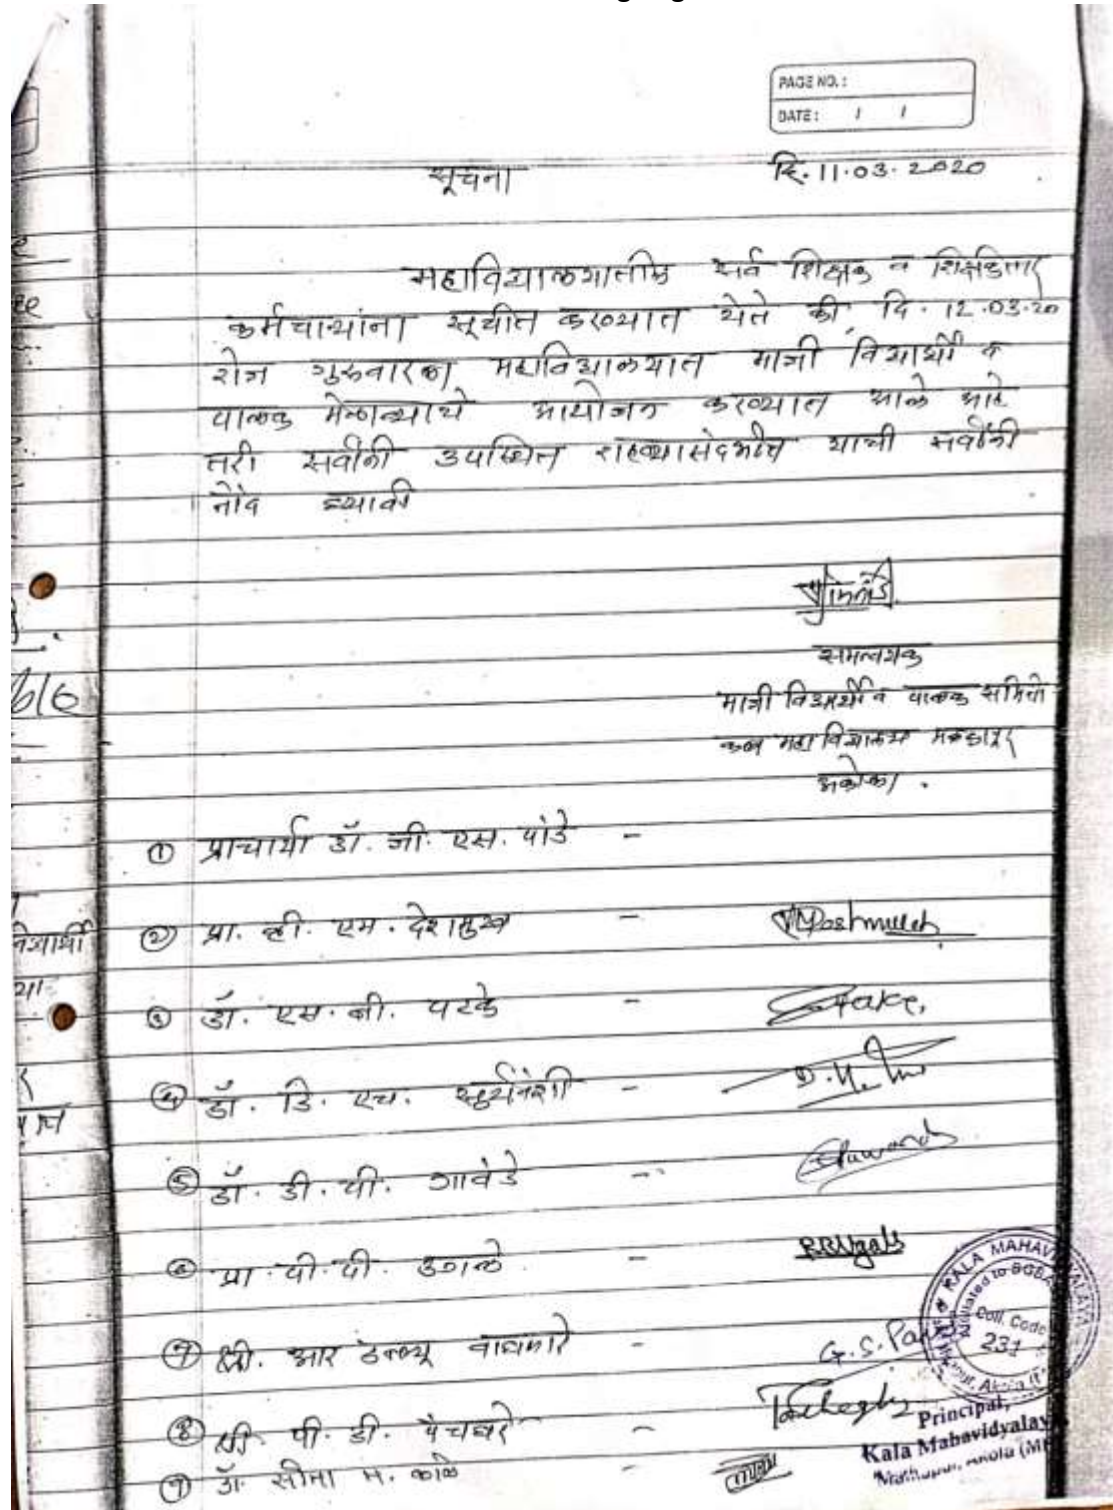 PAGE NO. :
DATE : / /
सूचना दि. 11.03.2020
महाविद्यालयातील सर्व शिक्षक व शिक्षकेत्तर
कर्मचाऱ्यांना सूचीत करण्यात येते की दि. 12.03.20
रोज गुरुवारला महाविद्यालयात माजी विद्यार्थी व
पालक मेळाव्याचे आयोजन करण्यात आले आहे
तरी सर्वांनी उपस्थित राहण्यासंदर्भात याची सर्वांनी
नोंद घ्यावी
समन्वयक
माजी विद्यार्थी व पालक समिती
कला महाविद्यालय मलकापूर
अकोला.
① प्राचार्या डॉ. जी. एस. पांडे -
② प्रा. व्ही. एम. देशमुख - Deshmukh
③ डॉ. एस. बी. पटके -
④ डॉ. डि. एच. सुर्यवंशी -
⑤ डॉ. डी. पी. गावंडे -
⑥ प्रा. पी. पी. उगले -
⑦ श्री. आर डब्ल्यू वाघमारे - G.S.
⑧ श्री. पी. डी. पैचघरे -
⑨ डॉ. सीमा म. काळे -
KALA MAHAV
Coll. Code
231
Principal,
Kala Mahavidyalaya